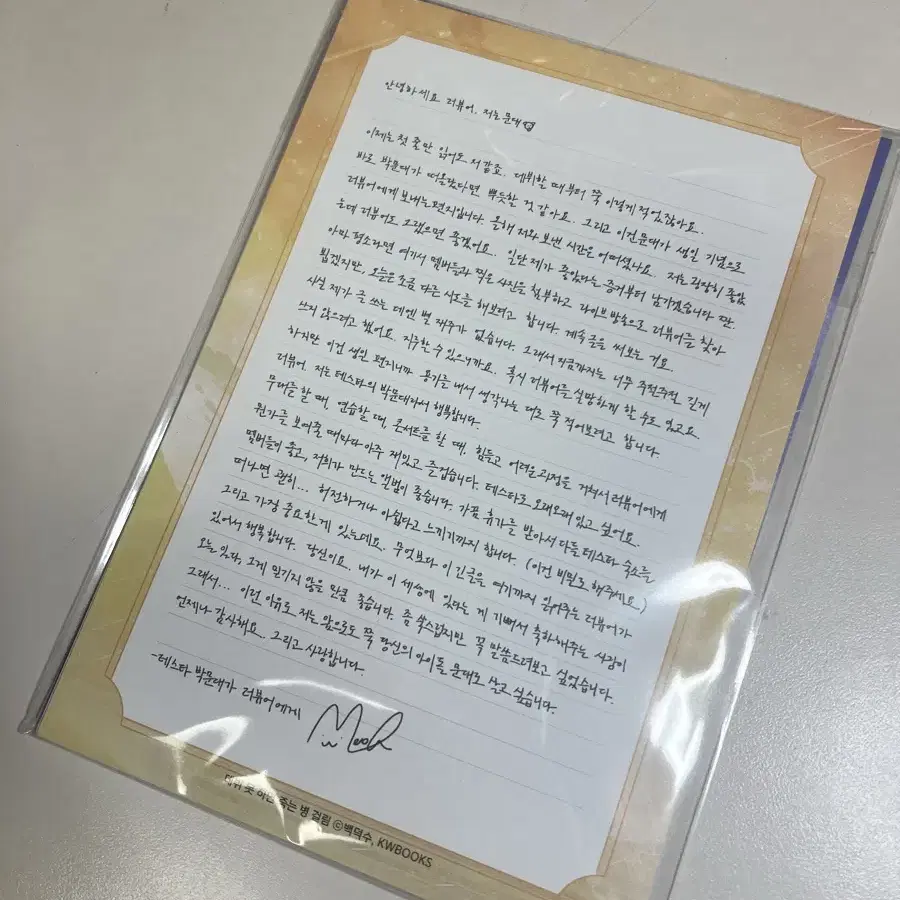 안녕하세요 러뷰어, 저는 문대
이제는 첫 줄만 읽어도 저 같죠. 데뷔할 때부터 쭉 이렇게 적었잖아요.
바로 박문대가 떠올랐다면 뿌듯한 것 같아요. 그리고 이건 문대가 생일 기념으로
러뷰어에게 보내는 편지입니다. 올해 저와 보낸 시간은 어떠셨나요. 저는 굉장히 좋았
는데 러뷰어도 그랬으면 좋겠어요. 일단 제가 좋았다는 증거부터 남기겠습니다. 짠.
아마 평소라면 여기서 멤버들과 찍은 사진을 첨부하고 라이브 방송으로 러뷰어를 찾아
뵙겠지만, 오늘은 조금 다른 시도를 해보려고 합니다. 계속 글을 써보는 거요.
사실 제가 글 쓰는 데엔 별 재주가 없습니다. 그래서 지금까지는 너무 주절주절 길게
쓰지 않으려고 했어요. 지루할 수 있으니까요. 혹시 러뷰어를 실망하게 할 수도 있고요.
하지만 이건 생일 편지니까 용기를 내서 생각나는 대로 쭉 적어보려고 합니다.
러뷰어. 저는 테스타의 박문대라서 행복합니다.
무대를 할 때, 연습할 때, 콘서트를 할 때, 힘들고 어려운 과정을 거쳐서 러뷰어에게
뭔가를 보여줄 때마다 아주 재밌고 즐겁습니다. 테스타로 오래오래 있고 싶어요.
멤버들이 좋고, 저희가 만드는 앨범이 좋습니다. 가끔 휴가를 받아서 다들 테스타 숙소를
떠나면 괜히... 허전하거나 아쉽다고 느끼기까지 합니다. (이건 비밀로 해주세요.)
그리고 가장 중요한 게 있는데요. 무엇보다 이 긴 글을 여기까지 읽어주는 러뷰어가
있어서 행복합니다. 당신이요. 내가 이 세상에 있다는 게 기뻐서 축하해주는 사람이
오늘 있다, 그게 믿기지 않을 만큼 좋습니다. 좀 쑥스럽지만 꼭 말씀드려보고 싶었습니다.
그래서... 이런 이유로 저는 앞으로도 쭉 당신의 아이돌 문대로 살고 싶습니다.
언제나 감사해요. 그리고 사랑합니다.
-테스타 박문대가 러뷰어에게
데뷔 못 하면 죽는 병 걸림 ⓒ백덕수, KWBOOKS